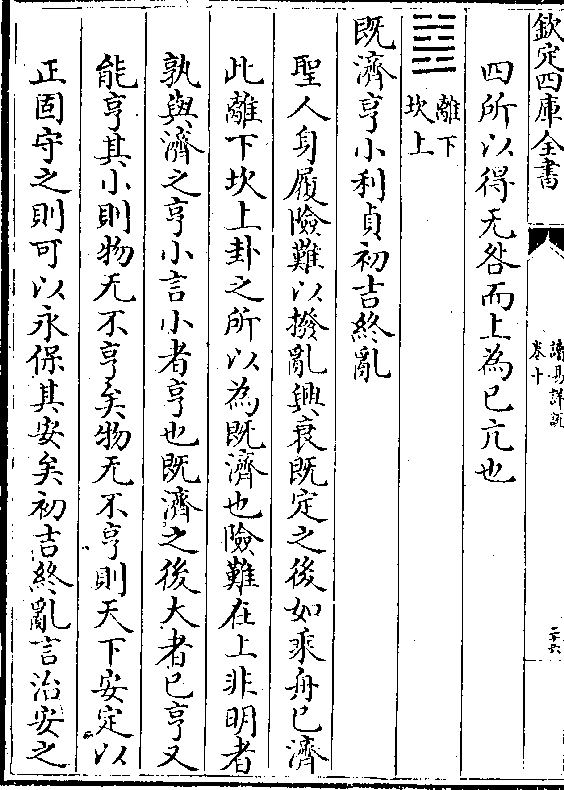 欽定四庫全書
讀易詳說
卷十
二十六
四所以得无咎而上為已亢也
離下
坎上
既濟亨小利貞初吉終亂
聖人身履險難以撥亂興衰既定之後如乘舟已濟
此離下坎上卦之所以為既濟也險難在上非明者
孰與濟之亨小言小者亨也既濟之後大者已亨又
能亨其小則物无不亨矣物无不亨則天下安定以
正固守之則可以永保其安矣初吉終亂言治安之